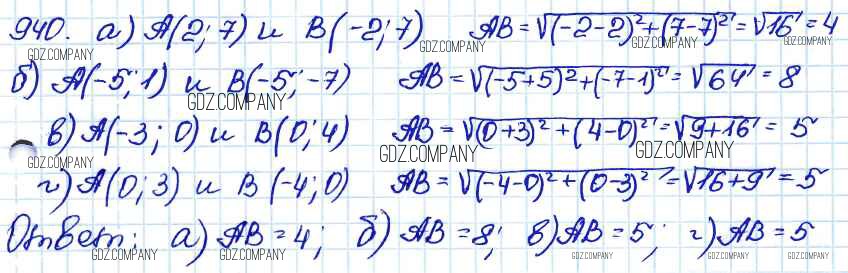 940. а) A(2; 7) и B(-2; 7) AB = √(-2-2)²+(7-7)² = √16 = 4
б) A(-5; 1) и B(-5; -7) AB = √(-5+5)²+(-7-1)² = √64 = 8
в) A(-3; 0) и B(0; 4) AB = √(0+3)²+(4-0)² = √9+16 = 5
г) A(0; 3) и B(-4; 0) AB = √(-4-0)²+(0-3)² = √16+9 = 5
Ответ: а) AB = 4; б) AB = 8; в) AB = 5; г) AB = 5
GDZ.COMPANY
GDZ.COMPANY
GDZ.COMPANY
GDZ.COMPANY
GDZ.COMPANY
GDZ.COMPANY
GDZ.COMPANY
GDZ.COMPANY
GDZ.COMPANY
GDZ.COMPANY
GDZ.COMPANY
GDZ.COMPANY
GDZ.COMPANY